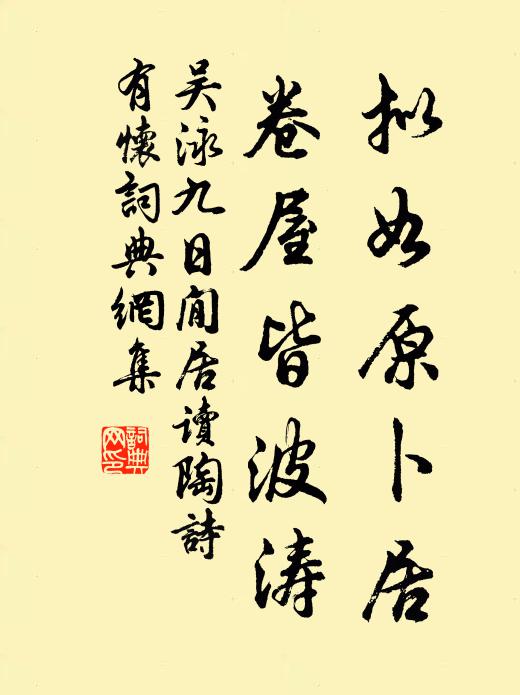 拟如原卜居
卷屋皆波涛
吴泳九日闲居读陶詩
有懷詞典網集
詞典
网印